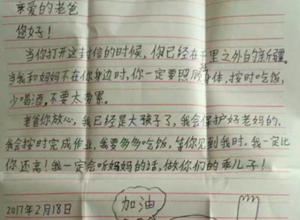 亲爱的老爸
您好！
当你打开这封信的时候，你已经在千里之外的新疆，
当我和妈妈不在你身边时，你一定要照顾身体，按时吃饭，
少喝酒，不要太劳累。
老爸你放心，我已经是大孩子了，我会保护好老妈的，
我会按时完成作业，我要多多吃饭，等你见到我时，我一定比
你还高！我一定会听妈妈的话，做你们的乖儿子！
加油
2017年2月18日